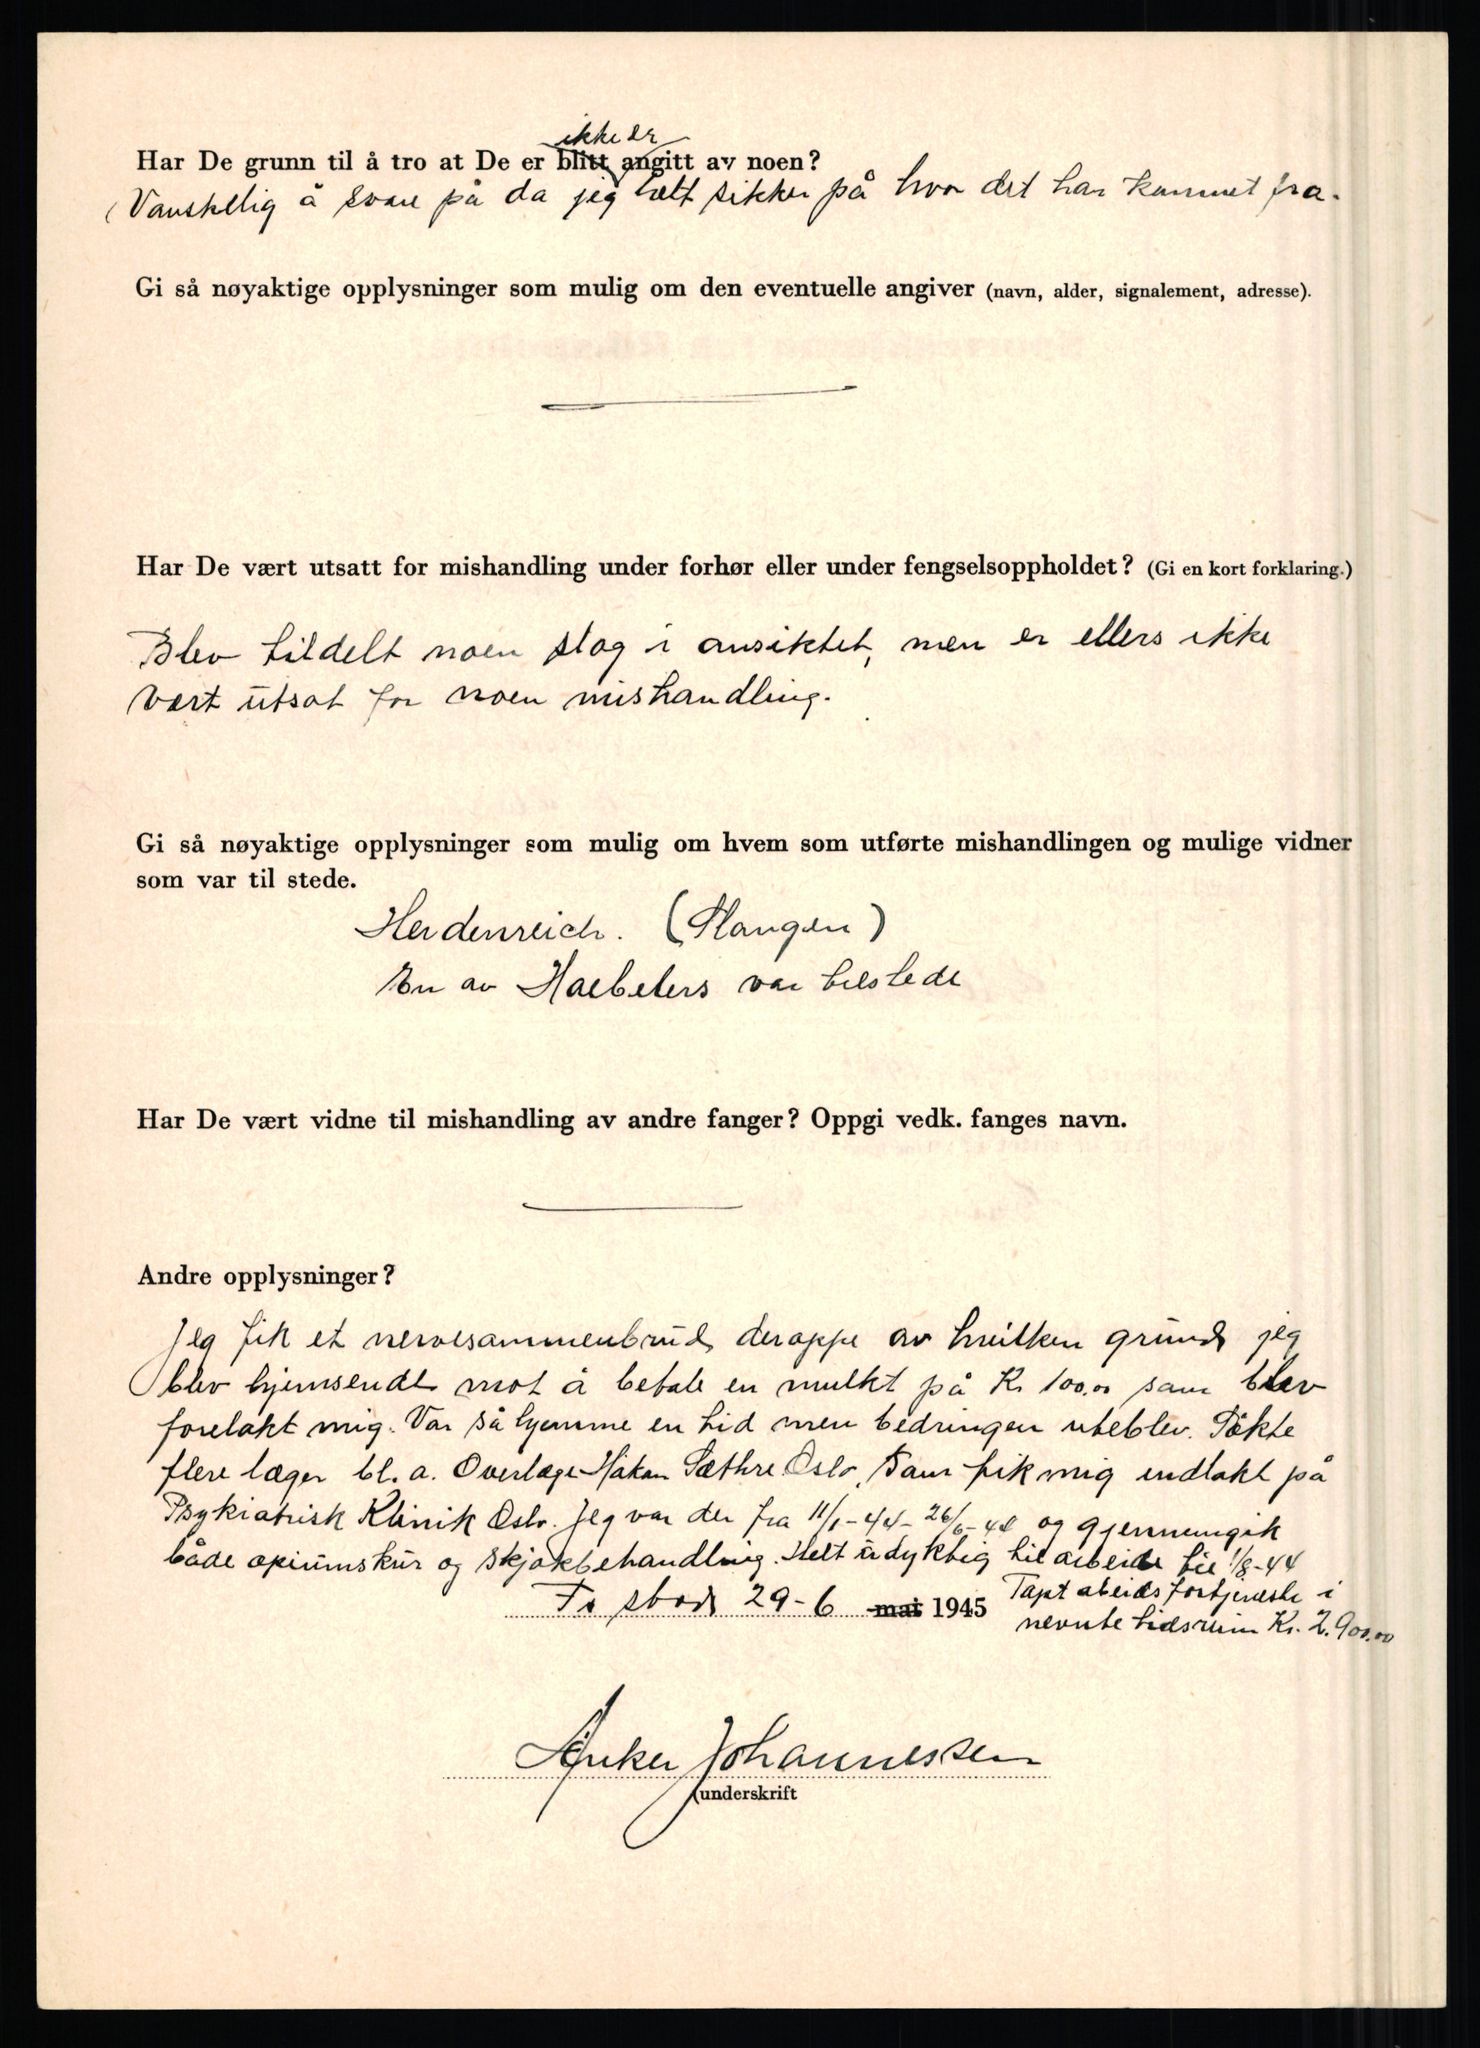 ikke er
Har De grunn til å tro at De er blitt angitt av noen?
Vanskelig å svare på da jeg helt sikker på hvor det har kommet fra.
Gi så nøyaktige opplysninger som mulig om den eventuelle angiver (navn, alder, signalement, adresse).
Har De vært utsatt for mishandling under forhør eller under fengselsoppholdet? (Gi en kort forklaring.)
Blev tildelt noen slag i ansiktet, men er ellers ikke
vært utsat for noen mishandling.
Gi så nøyaktige opplysninger som mulig om hvem som utførte mishandlingen og mulige vidner
som var til stede.
Heidenreich. (Slangen)
En av Haebelers var tilstede
Har De vært vidne til mishandling av andre fanger? Oppgi vedk. fanges navn.
Andre opplysninger?
Jeg fik et nervesammenbrud deroppe av hvilken grund jeg
blev hjemsendt mot å betale en mulkt på Kr 100.00 som blev
forelakt mig. Var så hjemme en tid men bedringen uteblev. Søkte
flere læger bl. a. Overlæge Håkon Sæthre Oslo, som fik mig indlakt på
Psykiatrisk Klinik Oslo. Jeg var der fra 11/1-44- 26/6-44 og gjennemgik
både opiumskur og skjokbehandling. Helt udyktig til arbeide til 1/8-44
Tapt abeidsfortjeneste i
nevnte tidsrum Kr. 2.900.00
Fr stad 29-6 mai 1945
Anker Johannessen
(underskrift